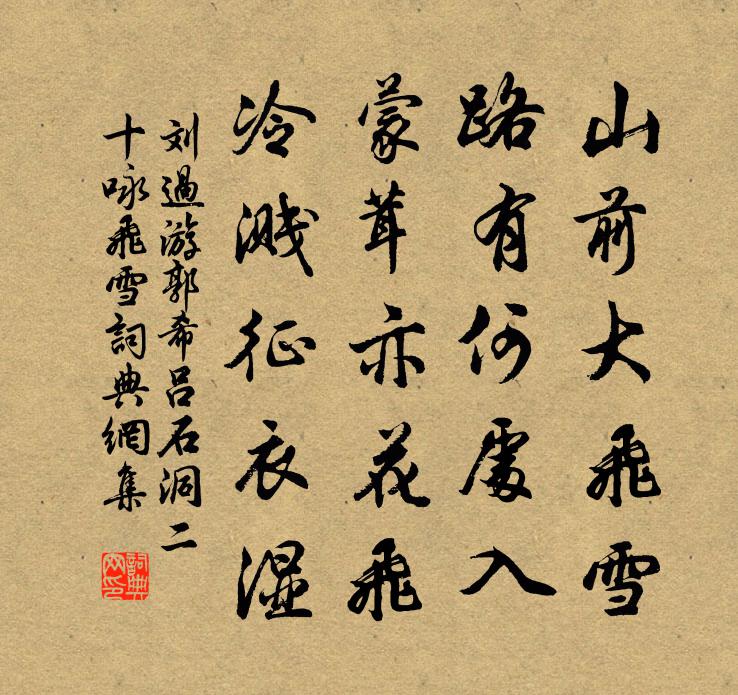 山前大飛雪
路有何處入
蒙茸亦花飛
冷溅征衣湿
刘過游郭希吕石洞二
十咏飛雪詞典網集
詞典
网印